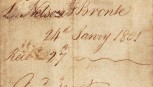 Ld. Nelson & Bronte
24th Janry 1801
Recd. 27